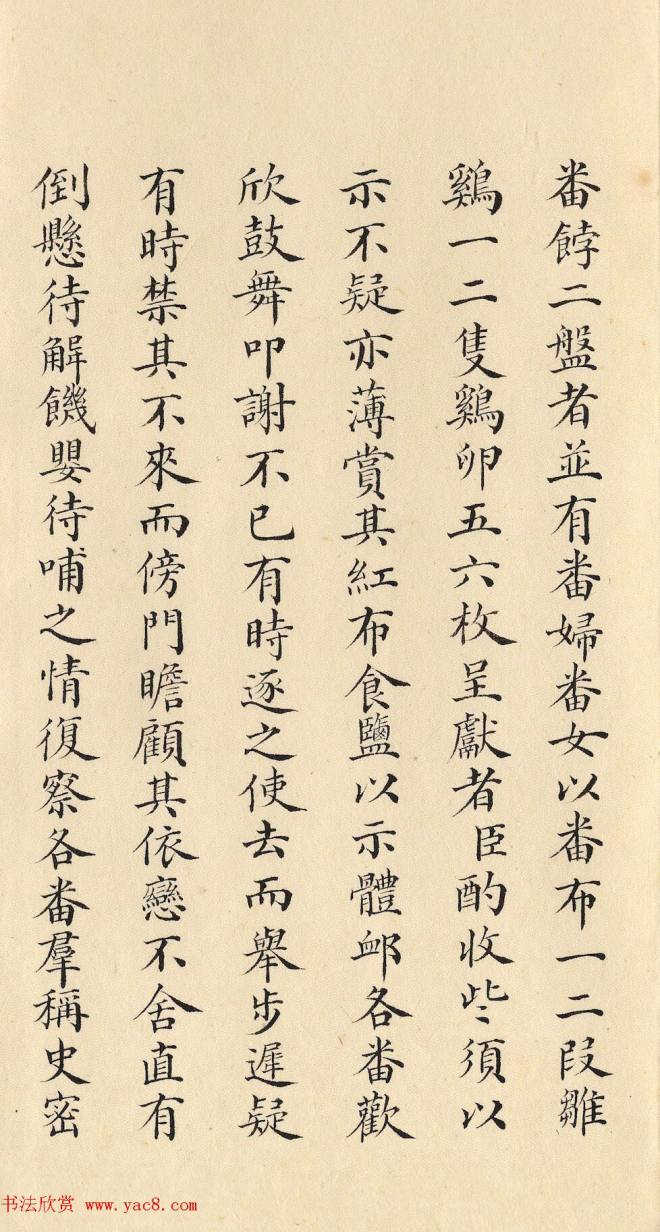 番餑二盤者並有番婦番女以番布一二段雛
鷄一二隻鷄卵五六枚呈獻者臣酌收些須以
示不疑亦薄賞其紅布食鹽以示體邺各番歡
欣鼓舞叩謝不已有時逐之使去而舉步遲疑
有時禁其不來而傍門瞻顧其依戀不舍直有
倒懸待解饑嬰待哺之情復察各番羣稱史密
书法欣赏 www.yac8.com